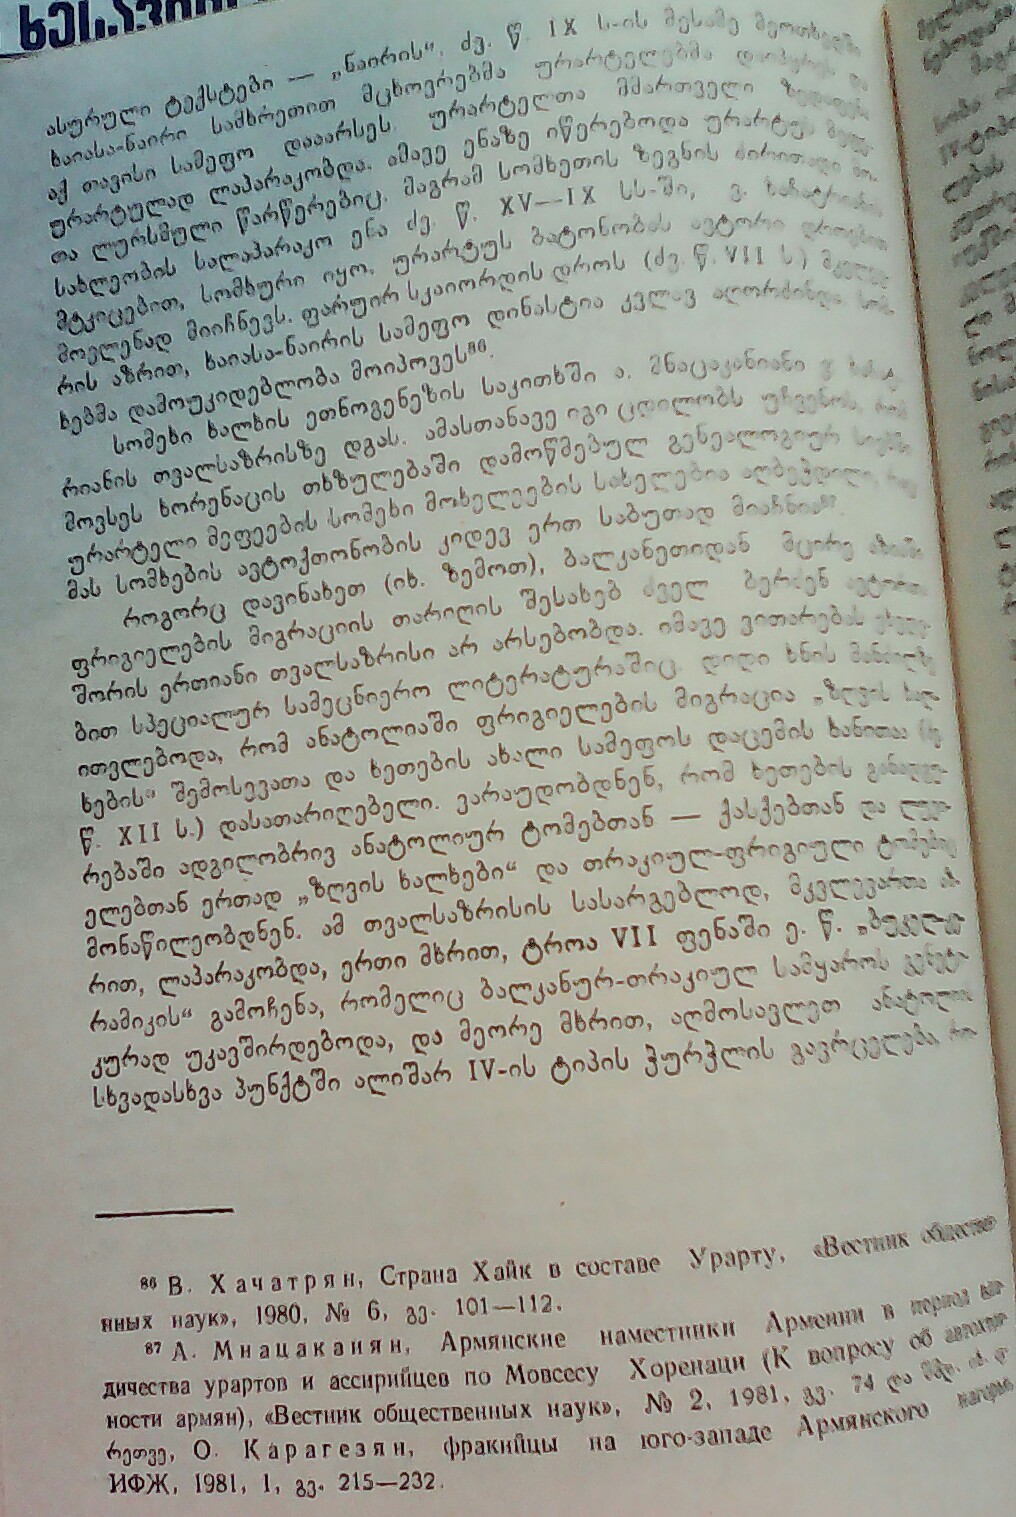 ასურული ტექსტები — „ნაირის“. ძვ. წ. IX ს-ის მესამე მეოთხედში
ხაიასა-ნაირი სამხრეთით მცხოვრებმა ურარტელებმა დაიპყრეს და
აქ თავისი სამეფო დააარსეს. ურარტელთა მმართველი ზედაფენა
ურარტულად ლაპარაკობდა. ამავე ენაზე იწერებოდა ურარტუს მეფე-
თა ლურსმული წარწერებიც. მაგრამ სომხეთის ზეგნის ძირითადი მო-
სახლეობის სალაპარაკო ენა ძვ. წ. XV—IX სს-ში, ვ. ხაჩატრიანის
მტკიცებით, სომხური იყო. ურარტუს ბატონობას ავტორი დროებით
მოვლენად მიიჩნევს. ფარუირ სკაიორდის დროს (ძვ. წ. VII ს.) მკვლევ-
რის აზრით, ხაიასა-ნაირის სამეფო დინასტია კვლავ აღორძინდა. სომ-
ხებმა დამოუკიდებლობა მოიპოვეს⁸⁶.
სომეხი ხალხის ეთნოგენეზის საკითხში ა. მნაცაკანიანი ვ. ხაჩატ-
რიანის თვალსაზრისზე დგას. ამასთანავე იგი ცდილობს უჩვენოს, რომ
მოვსეს ხორენაცის თხზულებაში დამოწმებულ გენეალოგიურ სიებში
ურარტელი მეფეების სომეხი მოხელეების სახელებია აღბეჭდილი, რაც
მას სომხების ავტოქთონობის კიდევ ერთ საბუთად მიაჩნია⁸⁷.
როგორც დავინახეთ (იხ. ზემოთ), ბალკანეთიდან მცირე აზიაში
ფრიგიელების მიგრაციის თარიღის შესახებ ძველ ბერძენ ავტორთა
შორის ერთიანი თვალსაზრისი არ არსებობდა. იმავე ვითარებას ვხვდე-
ბით სპეციალურ სამეცნიერო ლიტერატურაშიც. დიდი ხნის მანძილზე
ითვლებოდა, რომ ანატოლიაში ფრიგიელების მიგრაცია „ზღვის ხალ-
ხების“ შემოსევათა და ხეთების ახალი სამეფოს დაცემის ხანითაა (ძვ.
წ. XII ს.) დასათარიღებელი. ვარაუდობდნენ, რომ ხეთების განადგუ-
რებაში ადგილობრივ ანატოლიურ ტომებთან — ქასქებთან და ლუვ-
ელებთან ერთად „ზღვის ხალხები“ და თრაკიულ-ფრიგიული ტომებიც
მონაწილეობდნენ. ამ თვალსაზრისის სასარგებლოდ, მკვლევართა აზ-
რით, ლაპარაკობდა, ერთი მხრით, ტროა VII ფენაში ე. წ. „ბუკელკე-
რამიკის“ გამოჩენა, რომელიც ბალკანურ-თრაკიულ სამყაროს გენეტი-
კურად უკავშირდებოდა, და მეორე მხრით, აღმოსავლეთ ანატოლიის
სხვადასხვა პუნქტში ალიშარ IV-ის ტიპის ჭურჭლის გავრცელება,
⁸⁶ В. Хачатрян, Страна Хайк в составе Урарту, «Вестник обществе-
нных наук», 1980, № 6, გვ. 101—112.
⁸⁷ А. Мнацаканян, Армянские наместники Армении в период вла-
дичества урартов и ассирийцев по Мовсесу Хоренаци (К вопросу об автохтон-
ности армян), «Вестник общественных наук», № 2, 1981, გვ. 74 და შმდ. იხ. აგ-
რეთვე, О. Карагезян, фракийцы на юго-западе Армянского нагорья,
ИФЖ, 1981, 1, გვ. 215—232.